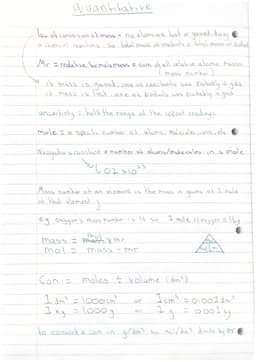 Quantitative
law of conservation of mass = no atoms are lost or gained during
a chemical reactions so total mass of reactants = total mass of products
Mr = relative formula mass = sum of all relative atomic masses
(mass number)
if mass is gained: one of reactants was probably a gas
if mass is lost: one of products was probably a gas
uncertainty = half the range of the repeat readings
mole = a specific number of atoms, molecules, ions, etc
avogadro's constant = number of atoms/molecules in a mole
6.02 x 10²³
Mass number of an element is the mass in grams of 1 mole
of that element
e.g oxygen's mass number is 16 so 1 mole of oxygen = 16g
mass = mol x mr
mol = mass ÷ mr
Con = moles ÷ volume (dm³)
1dm³ = 1000cm³ or 1cm³ = 0.001dm³
1Kg = 1000g or 1g = 0.001kg
to convert a con in g/dm³ to mol/dm³ divide by Mr